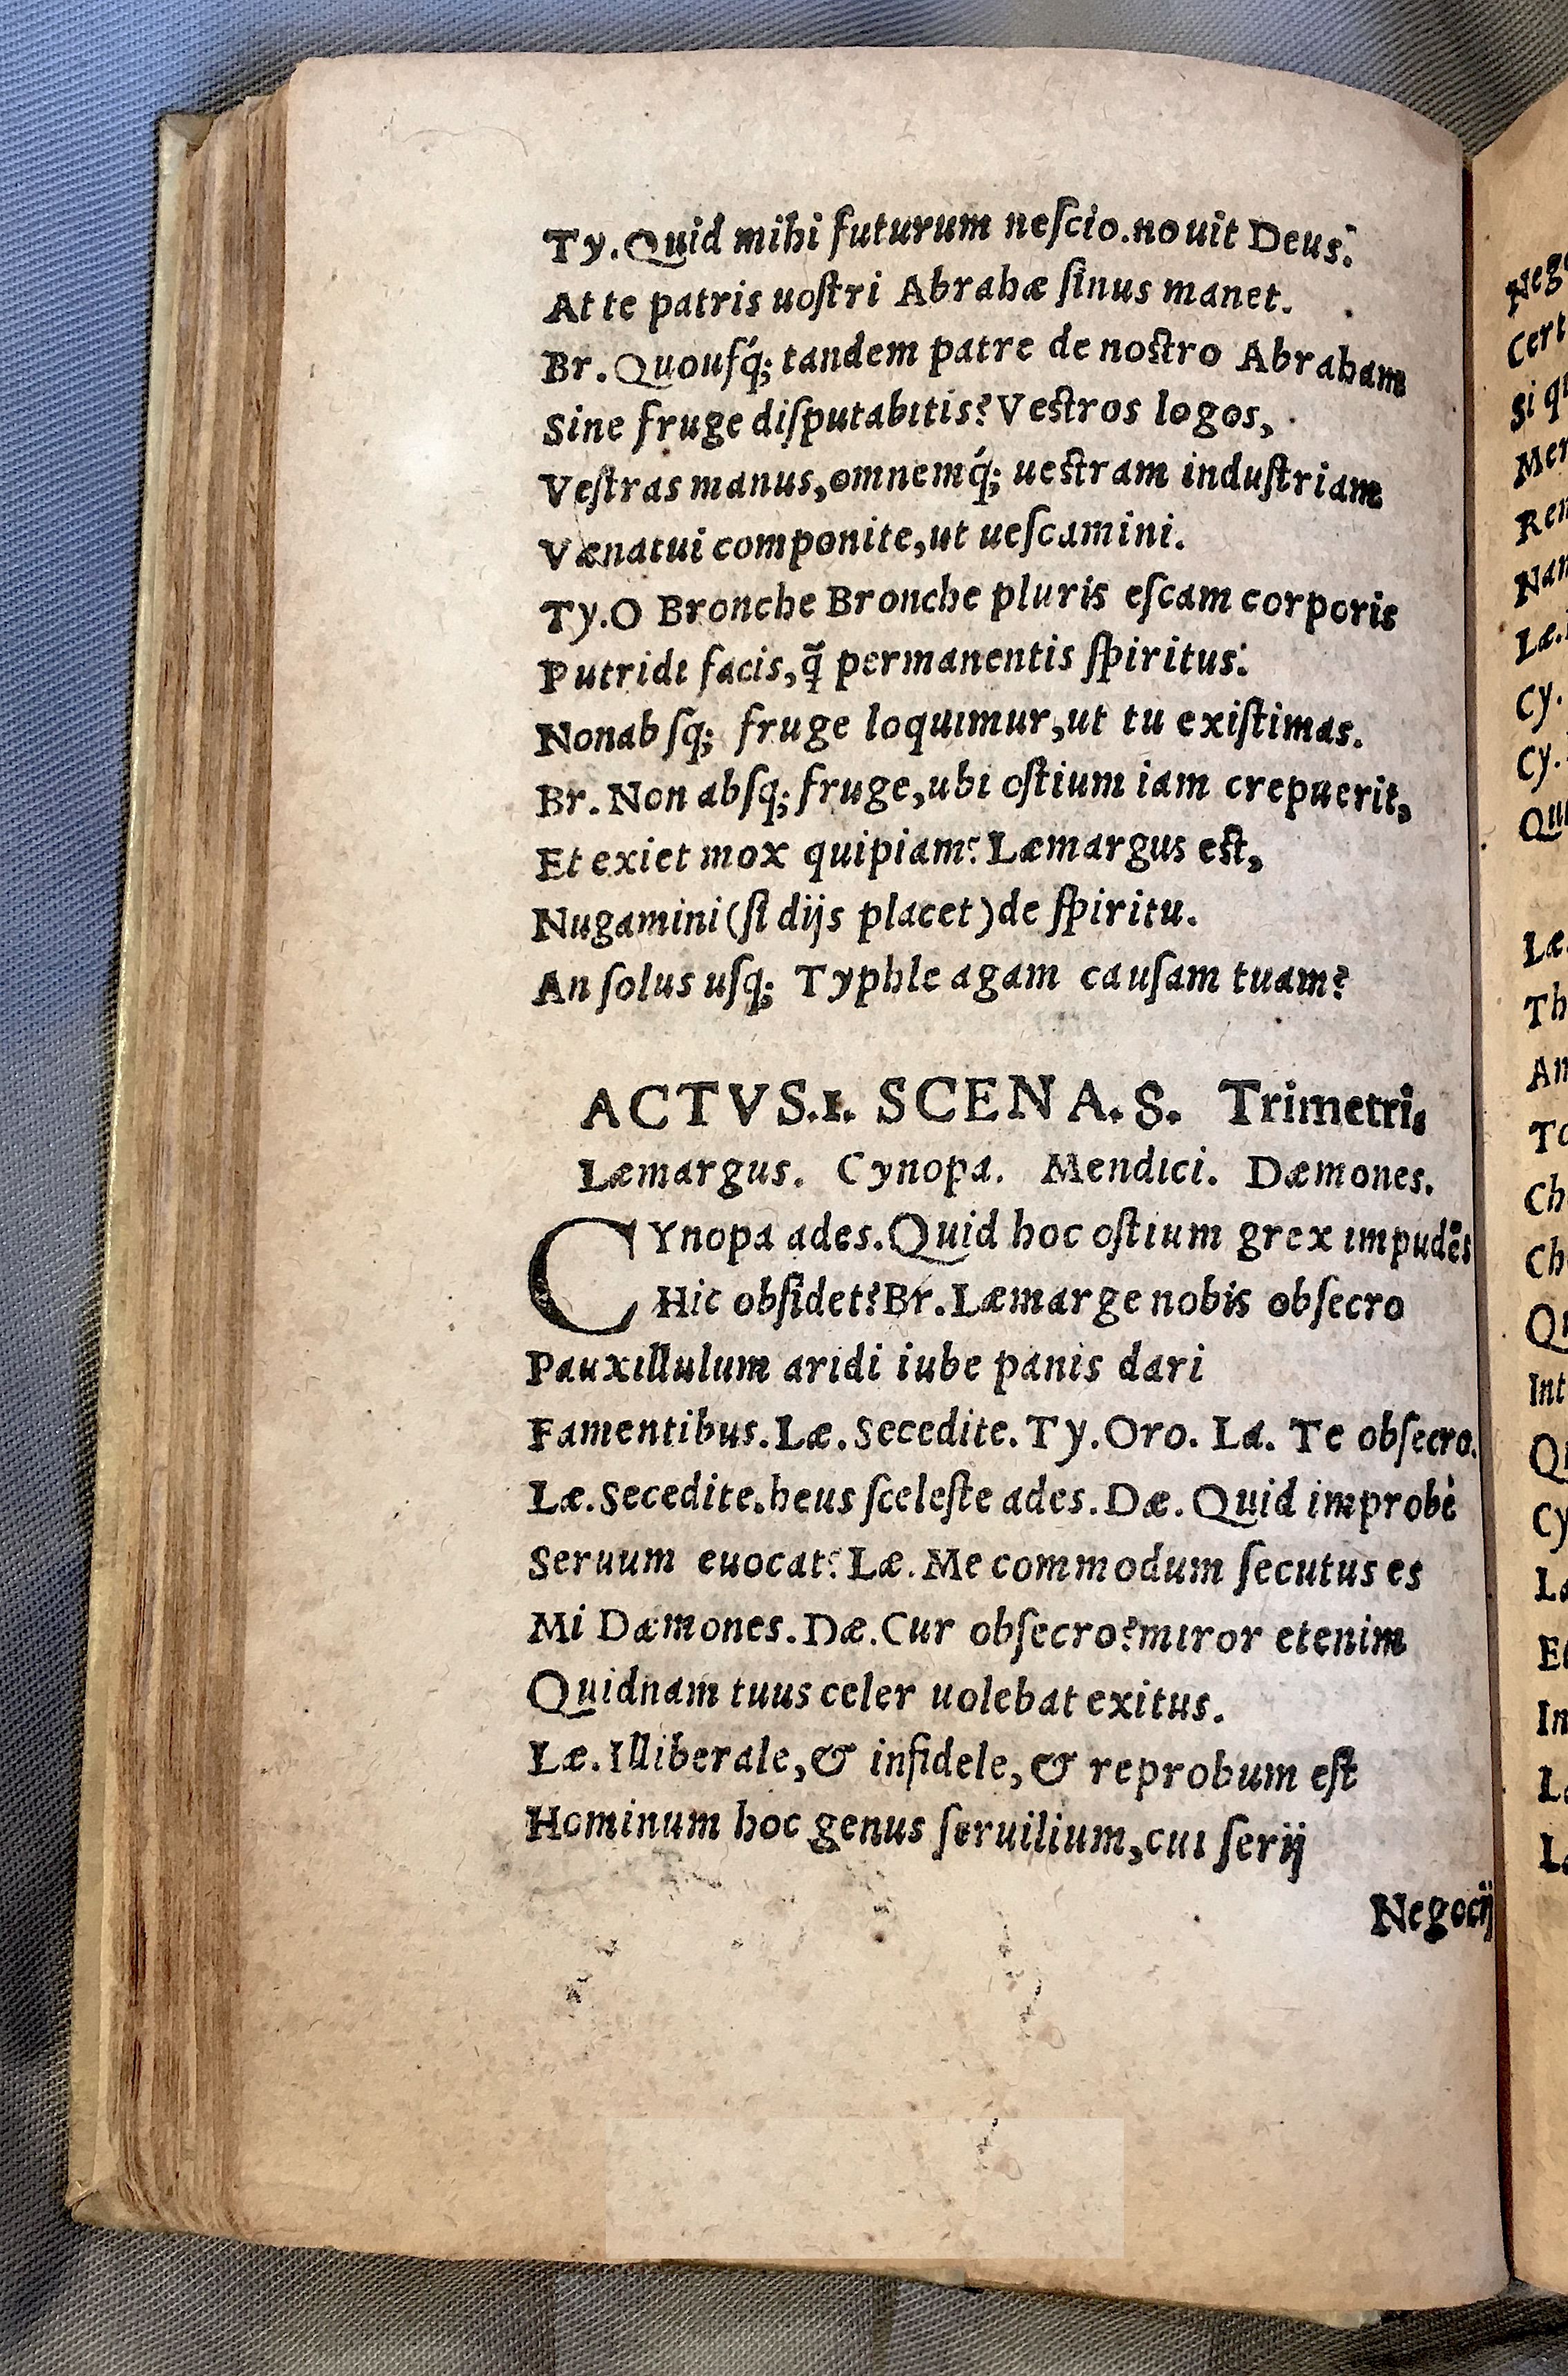 Ty. Quid mihi futurum neſcio. nouit Deus.
At te patris uoſtri Abrahæ ſinus manet.
Br. Quouſq́; tandem patre de noſtro Abraham
Sine fruge diſputabitis? Veſtros logos,
Veſtras manus, omnemq́; ueſtram induſtriam
Vænatui componite, ut ueſcamini.
Ty. O Bronche Bronche pluris eſcam corporis
Putridi facis, q̃ permanentis ſpiritus:
Non abſq; fruge loquimur, ut tu exiſtimas.
Br. Non abſq; fruge, ubi oſtium iam crepuerit,
Et exiet mox quipiam? Læmargus eſt,
Nugamini (ſi dijs placet) de ſpiritu.
An ſolus uſq; Typhle agam cauſam tuam?
ACTVS. I. SCENA. 8. Trimetri,
Læmargus. Cynopa. Mendici. Dæmones.
CYnopa ades. Quid hoc oſtium grex impudẽs
Hic obſidet? Br. Læmarge nobis obſecro
Pauxillulum aridi iube panis dari
Famentibus. Læ. Secedite. Ty. Oro. La. Te obſecro.
Læ. Secedite. heus ſceleſte ades. Dæ. Quid improbè
Seruum euocat? Læ. Me commodum ſecutus es
Mi Dæmones. Dæ. Cur obſecro? miror etenim
Quidnam tuus celer uolebat exitus.
Læ. Illiberale, & infidele, & reprobum eſt
Hominum hoc genus ſeruilium, cui ſerij
Negocij
Cert
Si qu
Læ.
Cy.
Cy.